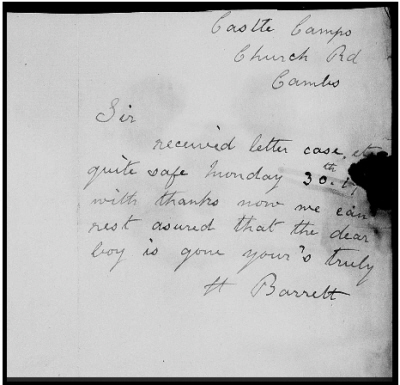 Castle Camps
Church Rd
Cambs
Sir
received letter case, etc
quite safe Monday 30th.
with thanks now we can
rest asured that the dear
boy is gone your's truly
H Barrett